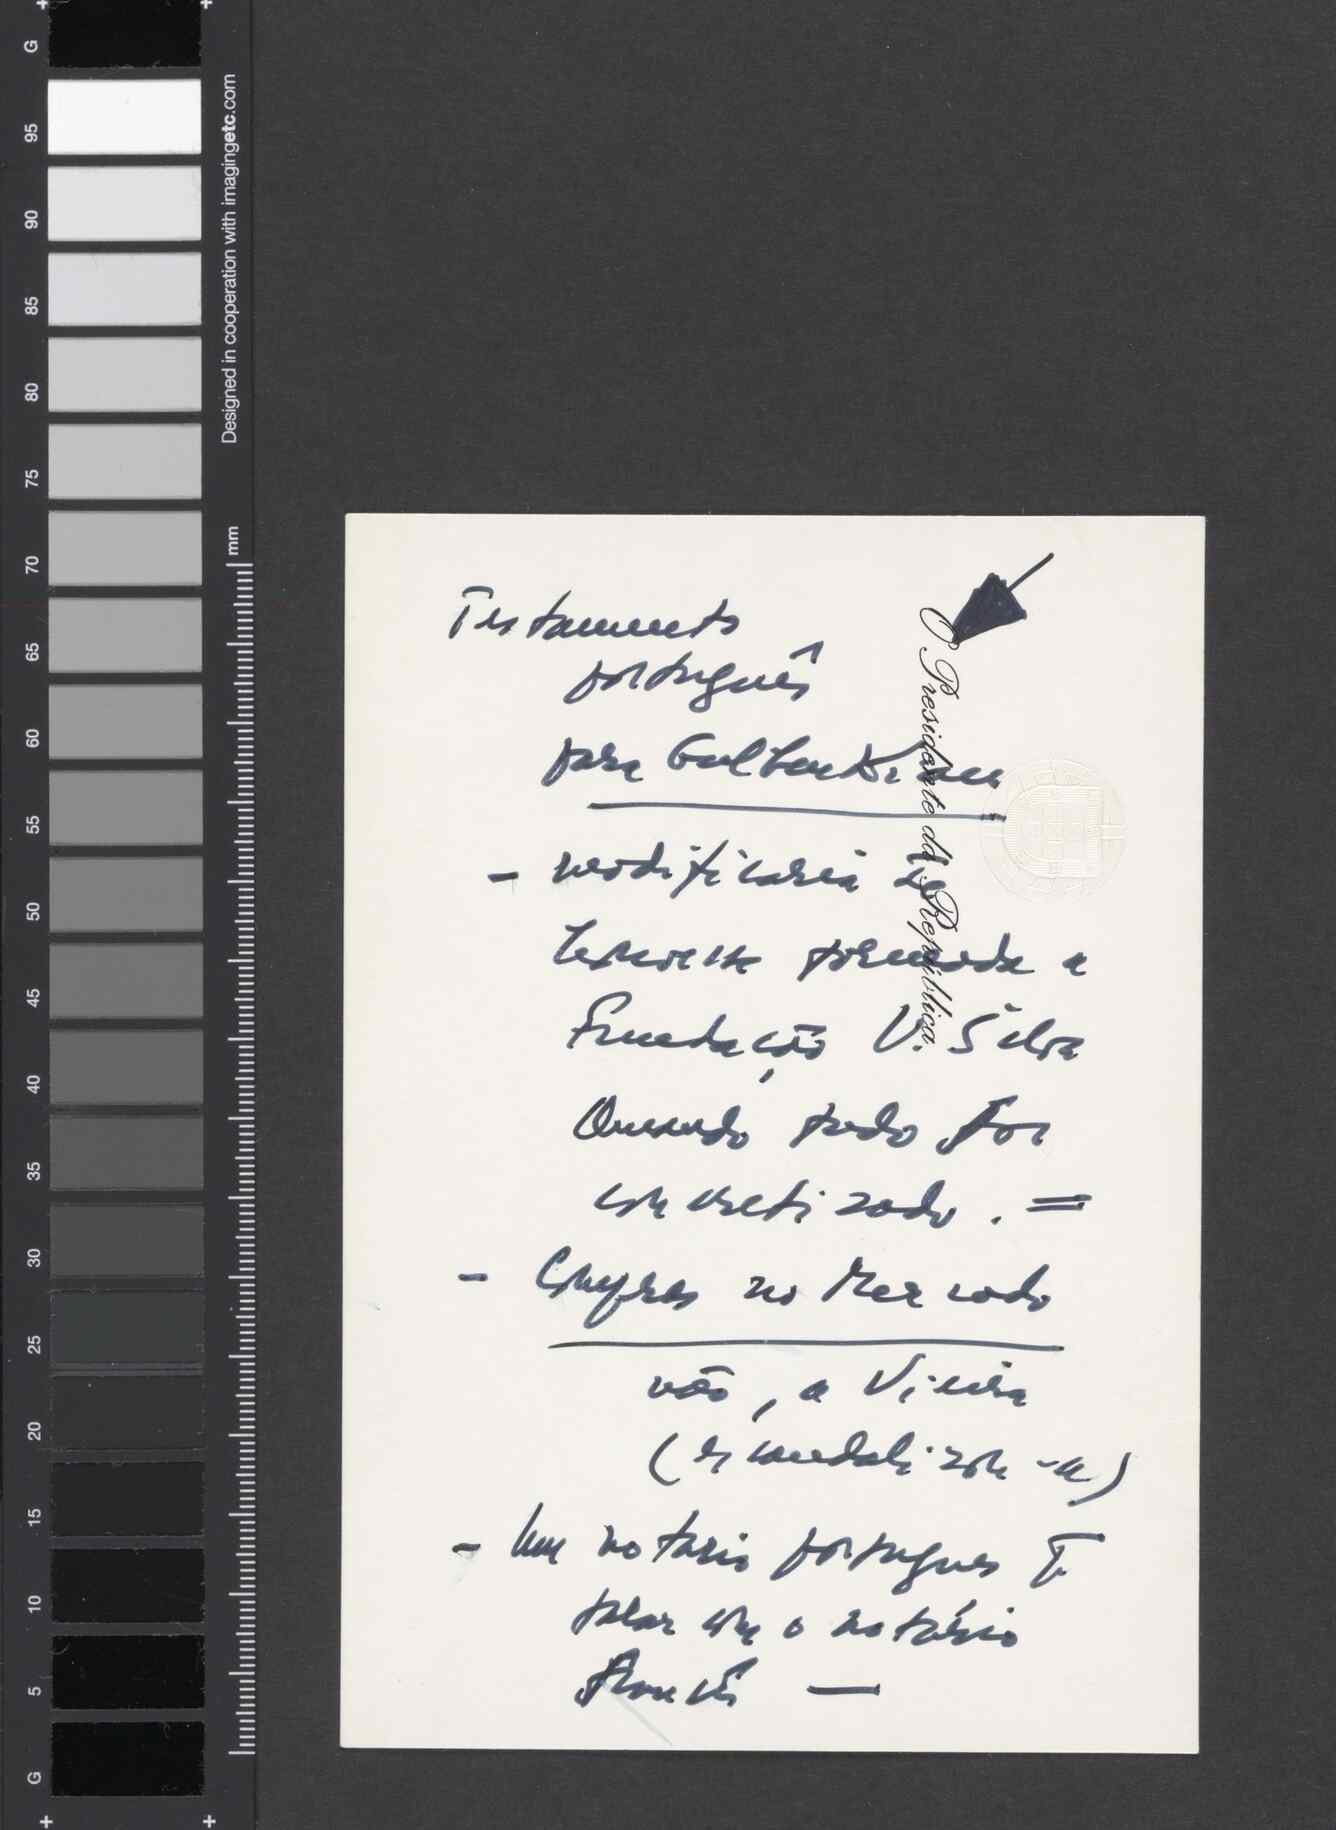 Testamento
português
para Gulbenkian
- modificaria se
formada a
Fundação V. Silva
Quando tudo for
concretizado. =
- Compras no Mercado
não, a Vieira
(escandaliza-a)
- Um notário portugues
falar com o notário
francês —
O Presidente da República
Designed in cooperation with imagingetc.com
mm
G
95
90
85
80
75
70
65
60
55
50
45
40
35
30
25
20
15
10
5
G